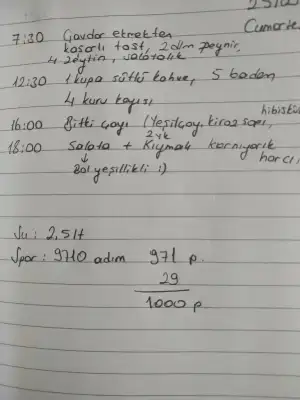 Cumarte
7:30 Çavdar ekmekten
kaşarlı tost, 2 dlm peynir,
4 zeytin, salatalık
12:30 1 kupa sütlü kahve, 5 badem
4 kuru kayısı
hibisküs
16:00 Bitki çayı (Yeşilçay, kiraz sapı,
2 yk
18:00 Salata + Kıymalı karnıyarık
harcı
↓
Bol yeşillikli :)
Su : 2,5 lt
Spor : 9710 adım 971 p.
29
1000 p